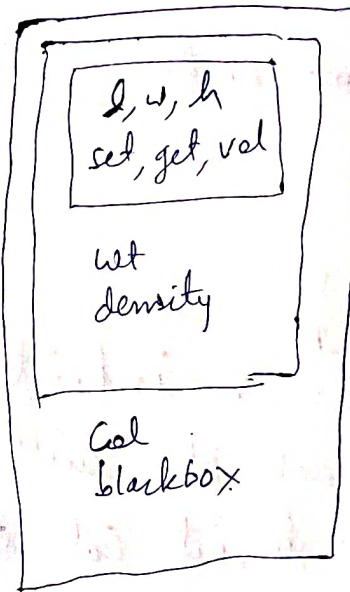 l, w, h
set, get, vol
wt
density
Col
blackbox